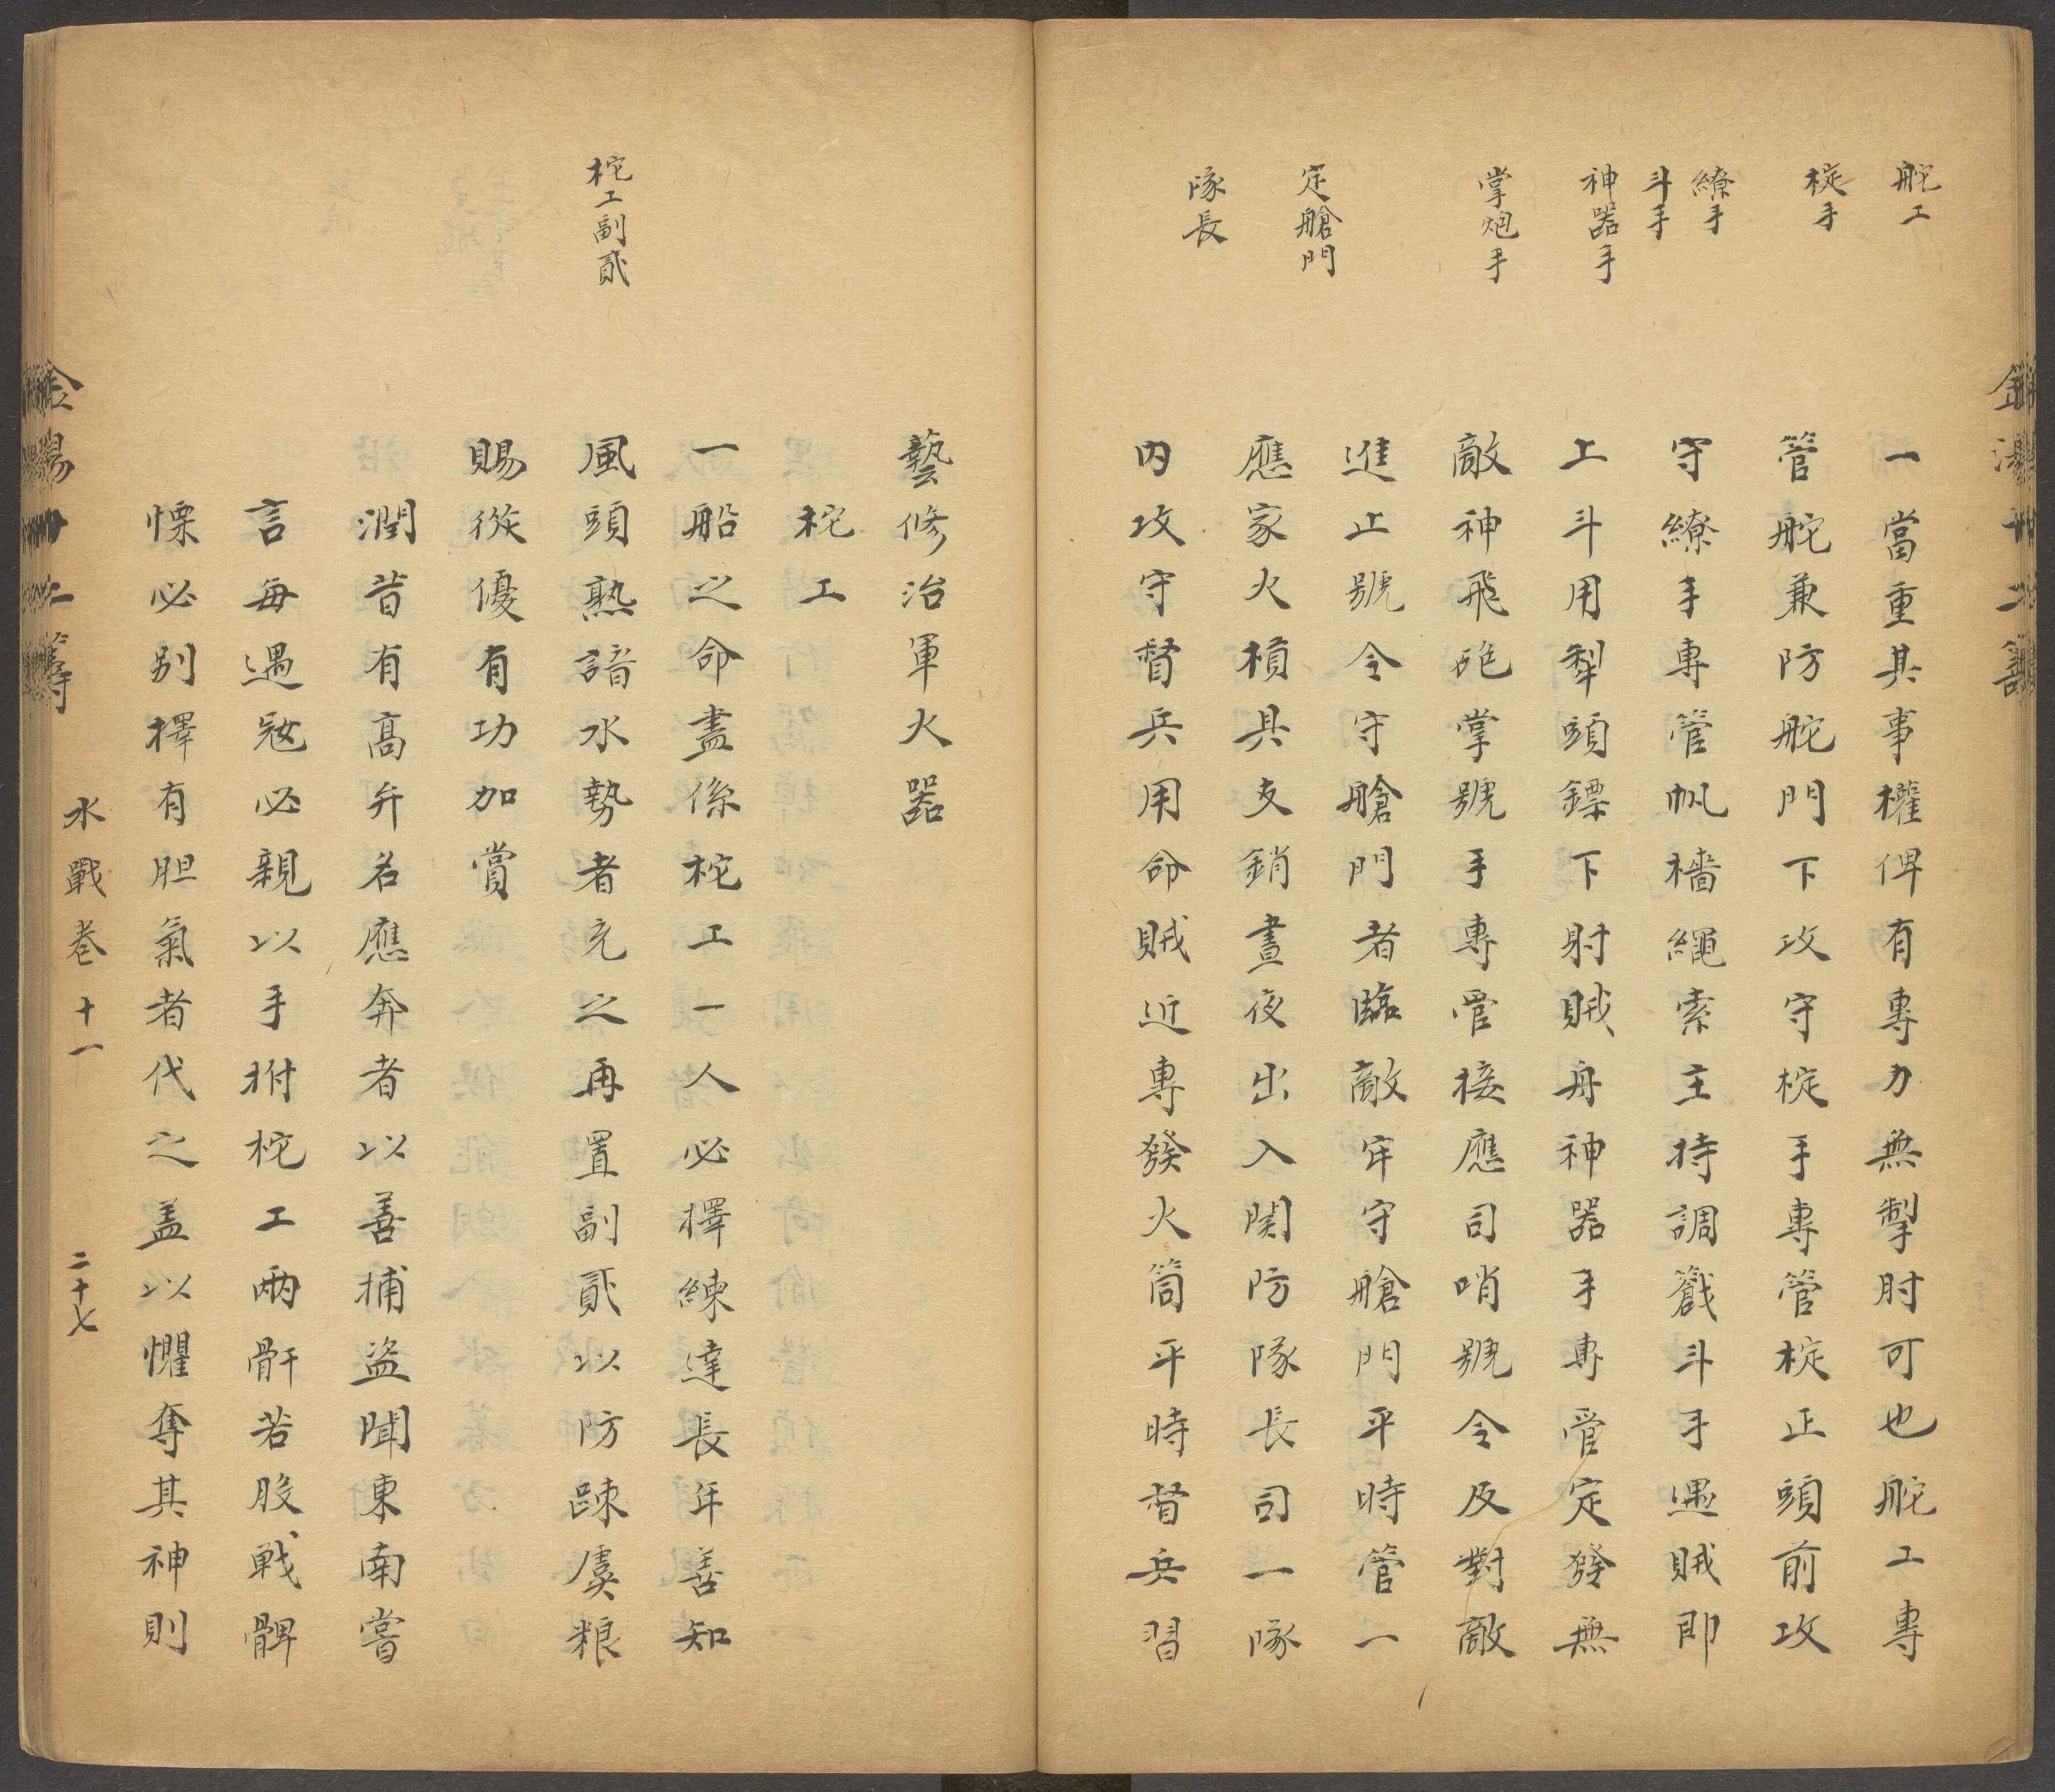 舵工
椗手
繚手
斗手
神器手
掌炮手
定艙門
隊長
一當重其事權俾有專力無掣肘可也舵工專
管舵兼防舵門下攻守椗手專管椗正頭前攻
守繚手專管帆檣繩索主持調戧斗手遇賊即
上斗用犁頭鏢下射賊舟神器手專管定發無
敵神飛砲掌號手專管接應司哨號令及對敵
進止號令守艙門者臨敵牢守艙門平時管一
應家火損具支銷晝夜出入関防隊長司一隊
內攻守督兵用命賊近專發火筒平時督兵習
柁工副貳
藝修治軍火器
柁工
一船之命盡係柁工一人必擇練達長年善知
風頭熟諳水勢者充之再置副貳以防踈虞粮
賜從優有功加賞
潤昔有髙弁名應奔者以善捕盜聞東南嘗
言每遇冦必親以手拊柁工兩骭若股戰髀
慄必别擇有胆氣者代之盖以懼奪其神則
水戰卷十一
二十七